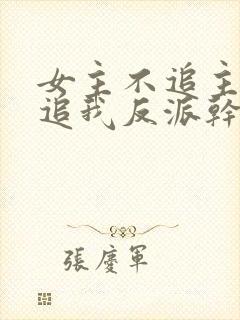 女主不追主
追我反派幹
張慶軍